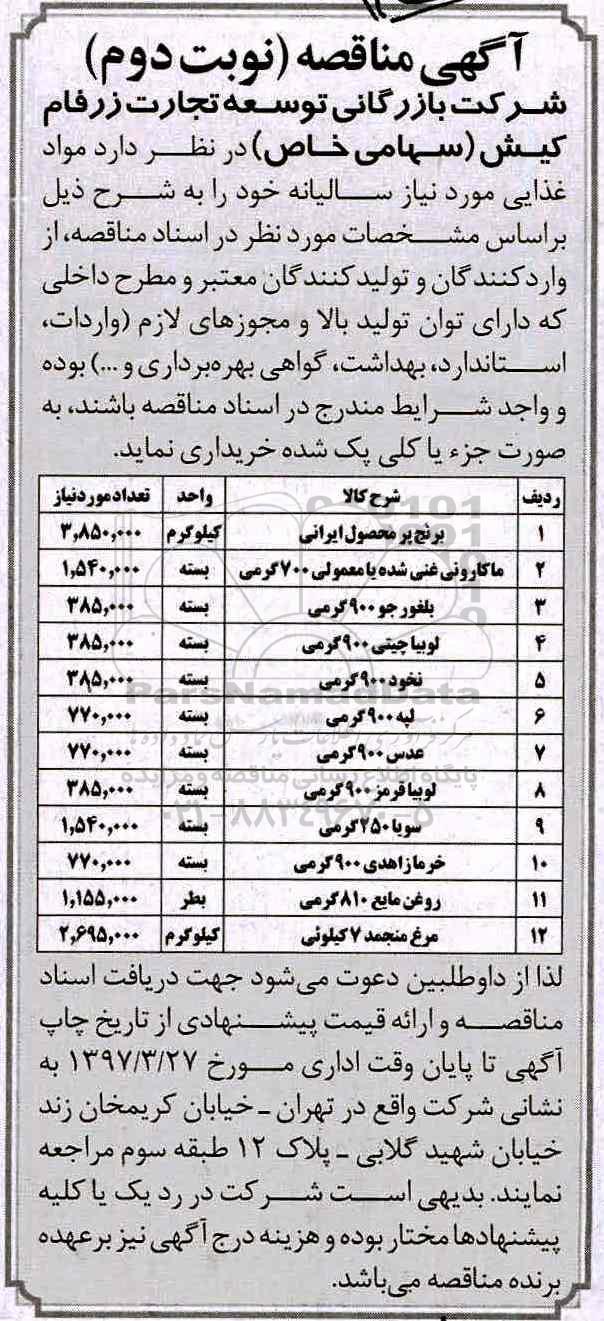 آگهی مناقصه (نوبت دوم)
شرکت بازرگانی توسعه تجارت زرفام
کیش (سهامی خاص) در نظر دارد مواد
غذایی مورد نیاز سالیانه خود را به شرح ذیل
براساس مشخصات مورد نظر در اسناد مناقصه، از
واردکنندگان و تولیدکنندگان معتبر و مطرح داخلی
که دارای توان تولید بالا و مجوزهای لازم (واردات،
استاندارد، بهداشت، گواهی بهره‌برداری و ...) بوده
و واجد شرایط مندرج در اسناد مناقصه باشند، به
صورت جزء یا کلی پک شده خریداری نماید.
ردیف شرح کالا واحد تعداد موردنیاز
۱ برنج پر محصول ایرانی کیلوگرم ۳,۸۵۰,۰۰۰
۲ ماکارونی غنی شده یا معمولی ۷۰۰ گرمی بسته ۱,۵۴۰,۰۰۰
۳ بلغور جو ۹۰۰ گرمی بسته ۳۸۵,۰۰۰
۴ لوبیا چیتی ۹۰۰ گرمی بسته ۳۸۵,۰۰۰
۵ نخود ۹۰۰ گرمی بسته ۳۸۵,۰۰۰
۶ لپه ۹۰۰ گرمی بسته ۷۷۰,۰۰۰
۷ عدس ۹۰۰ گرمی بسته ۷۷۰,۰۰۰
۸ لوبیا قرمز ۹۰۰ گرمی بسته ۳۸۵,۰۰۰
۹ سویا ۲۵۰ گرمی بسته ۱,۵۴۰,۰۰۰
۱۰ خرما زاهدی ۹۰۰ گرمی بسته ۷۷۰,۰۰۰
۱۱ روغن مایع ۸۱۰ گرمی بطر ۱,۱۵۵,۰۰۰
۱۲ مرغ منجمد ۷ کیلوئی کیلوگرم ۲,۶۹۵,۰۰۰
ParsNamadData
پایگاه اطلاع رسانی مناقصه و مزایده
۰۲۱-۸۸۳۴۹۶۷۰-۵
لذا از داوطلبین دعوت می‌شود جهت دریافت اسناد
مناقصه و ارائه قیمت پیشنهادی از تاریخ چاپ
آگهی تا پایان وقت اداری مورخ ۱۳۹۷/۳/۲۷ به
نشانی شرکت واقع در تهران ـ خیابان کریمخان زند
خیابان شهید گلابی ـ پلاک ۱۲ طبقه سوم مراجعه
نمایند. بدیهی است شرکت در رد یک یا کلیه
پیشنهادها مختار بوده و هزینه درج آگهی نیز برعهده
برنده مناقصه می‌باشد.